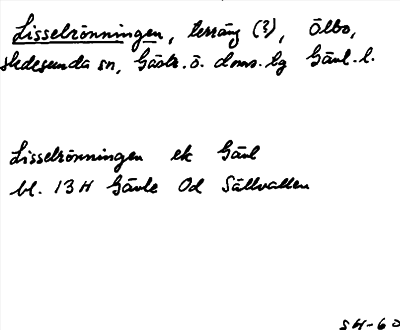 Lisselrönningen, terräng (?), Ölbo,
Hedesunda sn, Gästr. ö. doms. hg Gävl. l.
Lisselrönningen ek Gävl
bl. 13 H Gävle 0d Sällvallen
SH-60